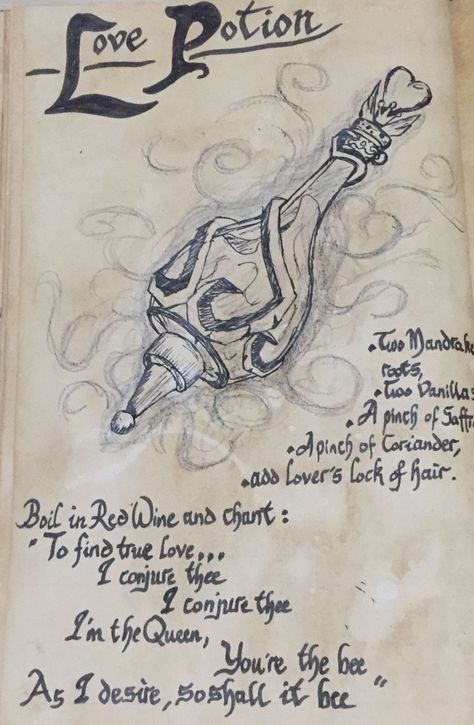 Love Potion
• Two Mandrake
roots,
• Two Vanillas
• A pinch of Saffr
• A pinch of Coriander,
• add Lover's lock of hair.
Boil in Red Wine and chant:
"To find true love...
I conjure thee
I conjure thee
I'm the Queen,
You're the bee
As I desire, so shall it bee"